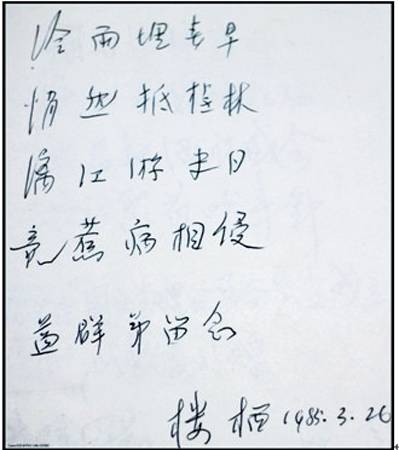 冷雨埋春早
悄然抵桂林
漓江游未日
竟惹病相侵
群弟留念
楼栖 1985.3.26